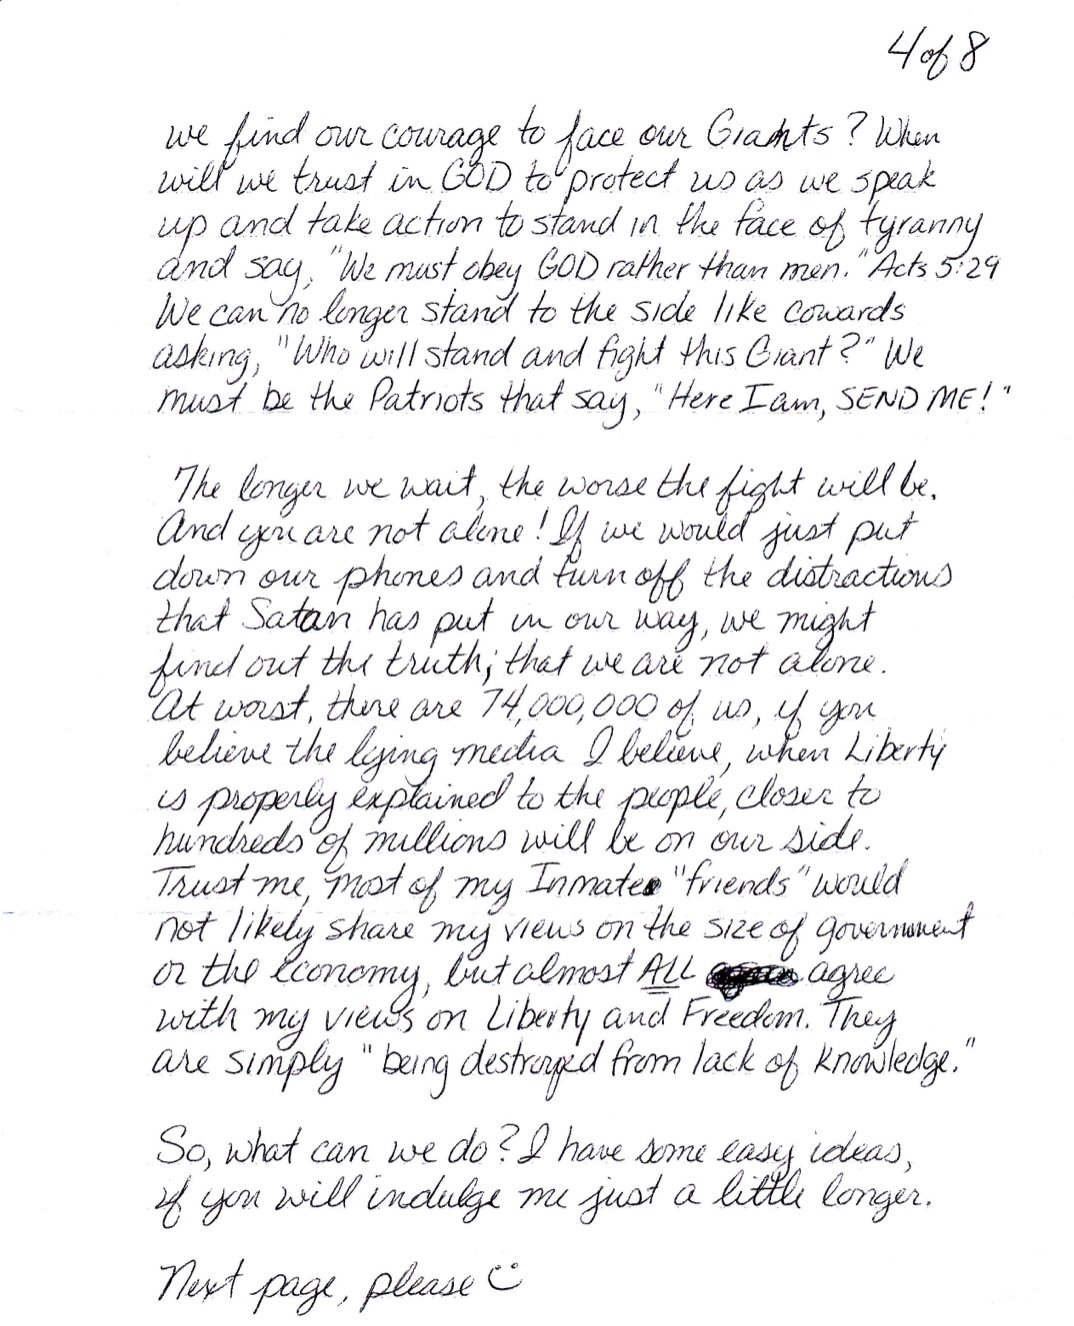 4 of 8
we find our courage to face our Giants? When
will we trust in GOD to protect us as we speak
up and take action to stand in the face of tyranny
and say, "We must obey GOD rather than men." Acts 5:29
We can no longer stand to the side like cowards
asking, "Who will stand and fight this Giant?" We
must be the Patriots that say, "Here I am, SEND ME!"
The longer we wait, the worse the fight will be.
And you are not alone! If we would just put
down our phones and turn off the distractions
that Satan has put in our way, we might
find out the truth; that we are not alone.
At worst, there are 74,000,000 of us, if you
believe the lying media I believe, when Liberty
is properly explained to the people, closer to
hundreds of millions will be on our side.
Trust me, most of my Inmate "friends" would
not likely share my views on the size of government
or the economy, but almost ALL agree
with my views on Liberty and Freedom. They
are simply "being destroyed from lack of knowledge."
So, what can we do? I have some easy ideas,
if you will indulge me just a little longer.
Next page, please